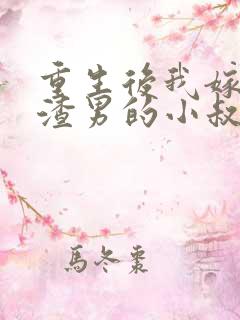 重生後我嫁
渣男的小叔
馬冬棗